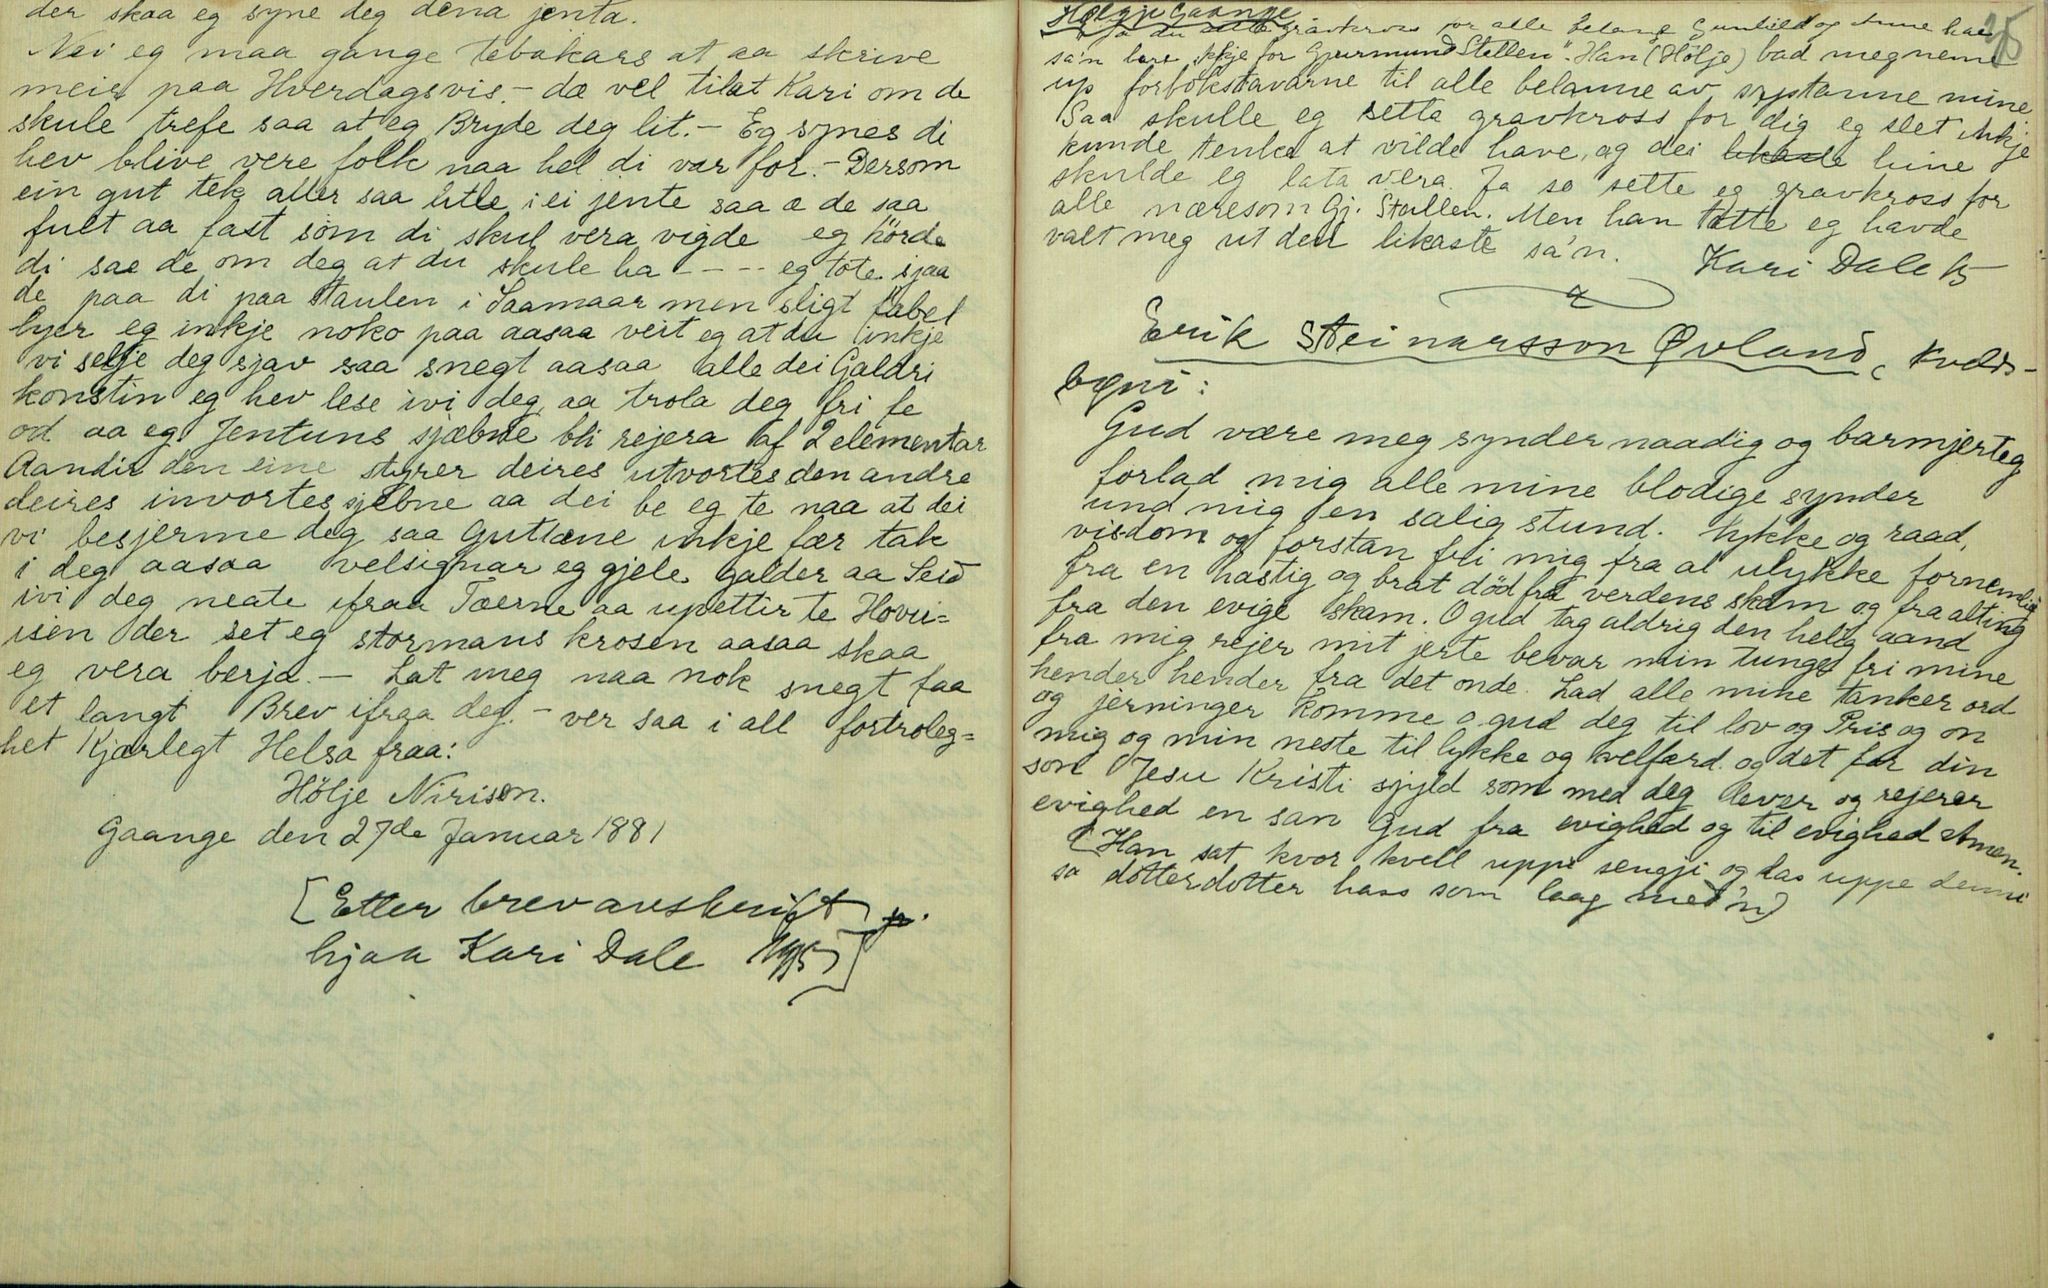 der skaa eg syne deg dena jenta.
Nei eg maa gange tebakars at aa skrive
meir paa Hverdagsvis. - dæ vel tilat Kari om de
skule trefe saa at eg Bryde deg lit. - Eg synes di
hev blive vere folk naa hel di var for. - Dersom
ein gut tek aller saa litle i ei jente saa æ de saa
fult aa fast som di skul vera vigde eg hörde
di sae de om deg at du skule ha - - - - eg tote sjaa
de paa di paa Staulen i Saamaar men sligt fabel
lyer eg inkje noko paa aasaa veit eg at du inkje
vi selje deg sjav saa snegt aasaa alle dei Galdri
konstin eg hev lese ivi deg aa trola deg fri fe
od aa eg Jentuns sjæbne bli rejera af 2 elementar
Aandir den eine styrer deires utvortes den andre
deires invortes sjebne aa dei be eg te naa at dei
vi besjerme deg saa Gutane inkje fær tak
i deg aasaa velsignar eg gjele galder aa Seid
ivi deg neate ifraa Tærne aa upettir te Hovu=
isen der set eg stormans krosen aasaa skaa
eg vera berja. - Lat meg naa nok snegt faa
et langt Brev ifraa deg. - ver saa i all fortroleg=
het Kjærlegt Helsa fraa:
Hölje Nirison.
Gaange den 27de Januar 1881
[Etter brevavskrift
hjaa Kari Dale 1915]
Hølgje Gaange 35
du gravkross for alle belane Gunhild og Anne
sa'n bare ikkje for Gjurmund Stallen". Han (Hölje) bad meg nemne
up forbokstavarne til alle belanne av systanne mine
Saa skulle eg sette gravkross for dig eg slet inkje
kunde tenke at vilde have, og dei likaste hine
skulde eg lata vera. Ja so sette eg gravkross for
alle næresom Gj. Stallen. Men han totte eg havde
valt meg ut den likaste sa'n. Kari Dale 15
Erik Steinarsson Øvland, kvelds-
bøni:
Gud være meg synder naadig og barmjerteg
forlad mig alle mine blodige synder
und mig en salig stund. lykke og raad,
visdom og forstan fri mig fra al ulykke fornemlig
fra en hastig og brat död fra verdens skam og fra alting
fra den evige skam. O gud tag aldrig den helig aand
fra mig rejer mit jerte bevar min tunge fri mine
hender hender fra det onde. Lad alle mine tanker ord
og jerninger komme o gud deg til lov og Pris og on
mig og min neste til lykke og velfærd. og det for din
son Jesu Kristi sjyld som med deg lever og rejerer
evighed en san Gud fra evighed og til evighed Amen.
(Han sat kvor kvell uppi sengji og las uppe denni
sa dotterdotter hass som laag med'n)